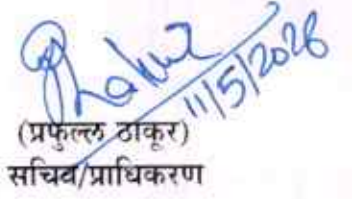 Thakur
11/5/2026
(प्रफुल्ल ठाकूर)
सचिव/प्राधिकरण